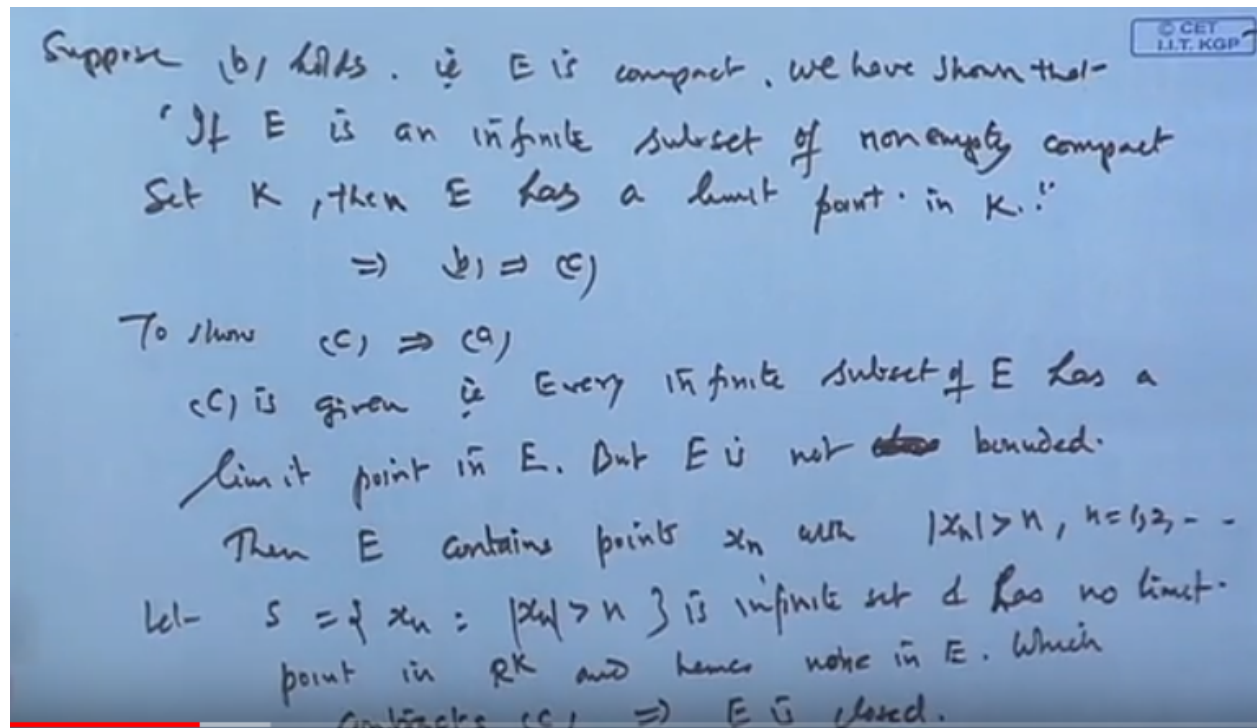 © CET
I.I.T. KGP
Suppose (b) holds. ie E is compact. we have shown that
"If E is an infinite subset of nonempty compact
Set K, then E has a limit point in K."
⇒ (b) ⇒ (c)
To show (c) ⇒ (a)
(c) is given ie Every infinite subset of E has a
limit point in E. But E is not bounded.
Then E contains points xn with |xn| > n, n=1,2, - -
Let S = { xn : |xn| > n } is infinite set & has no limit
point in R^K and hence none in E. Which
(c) ⇒ E is closed.